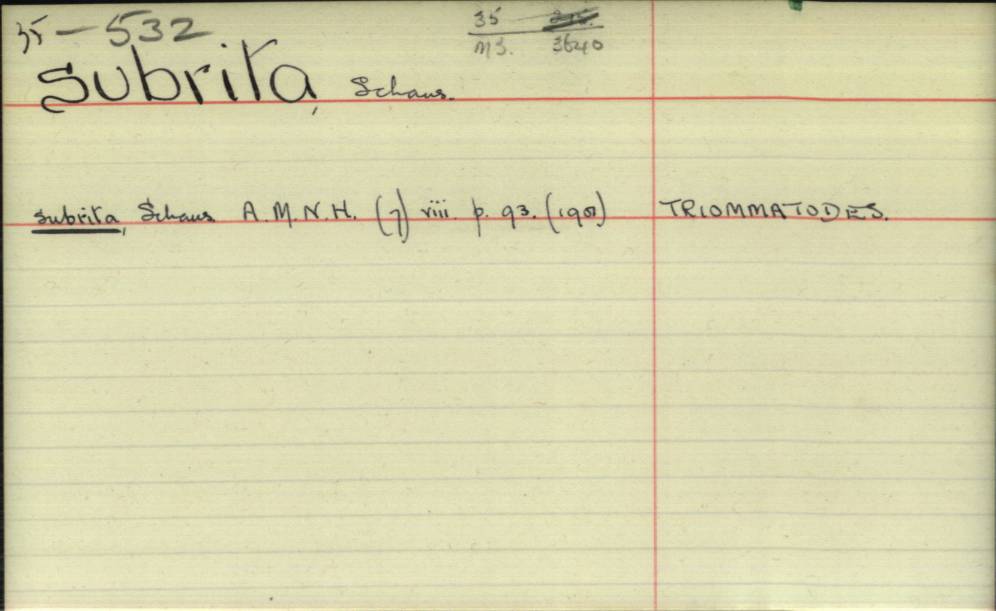 35-532
35
MS. 3640
subrita, Schaus.
subrita, Schaus A.M.N.H. (7) viii. p. 93. (1901) TRIOMMATODES.